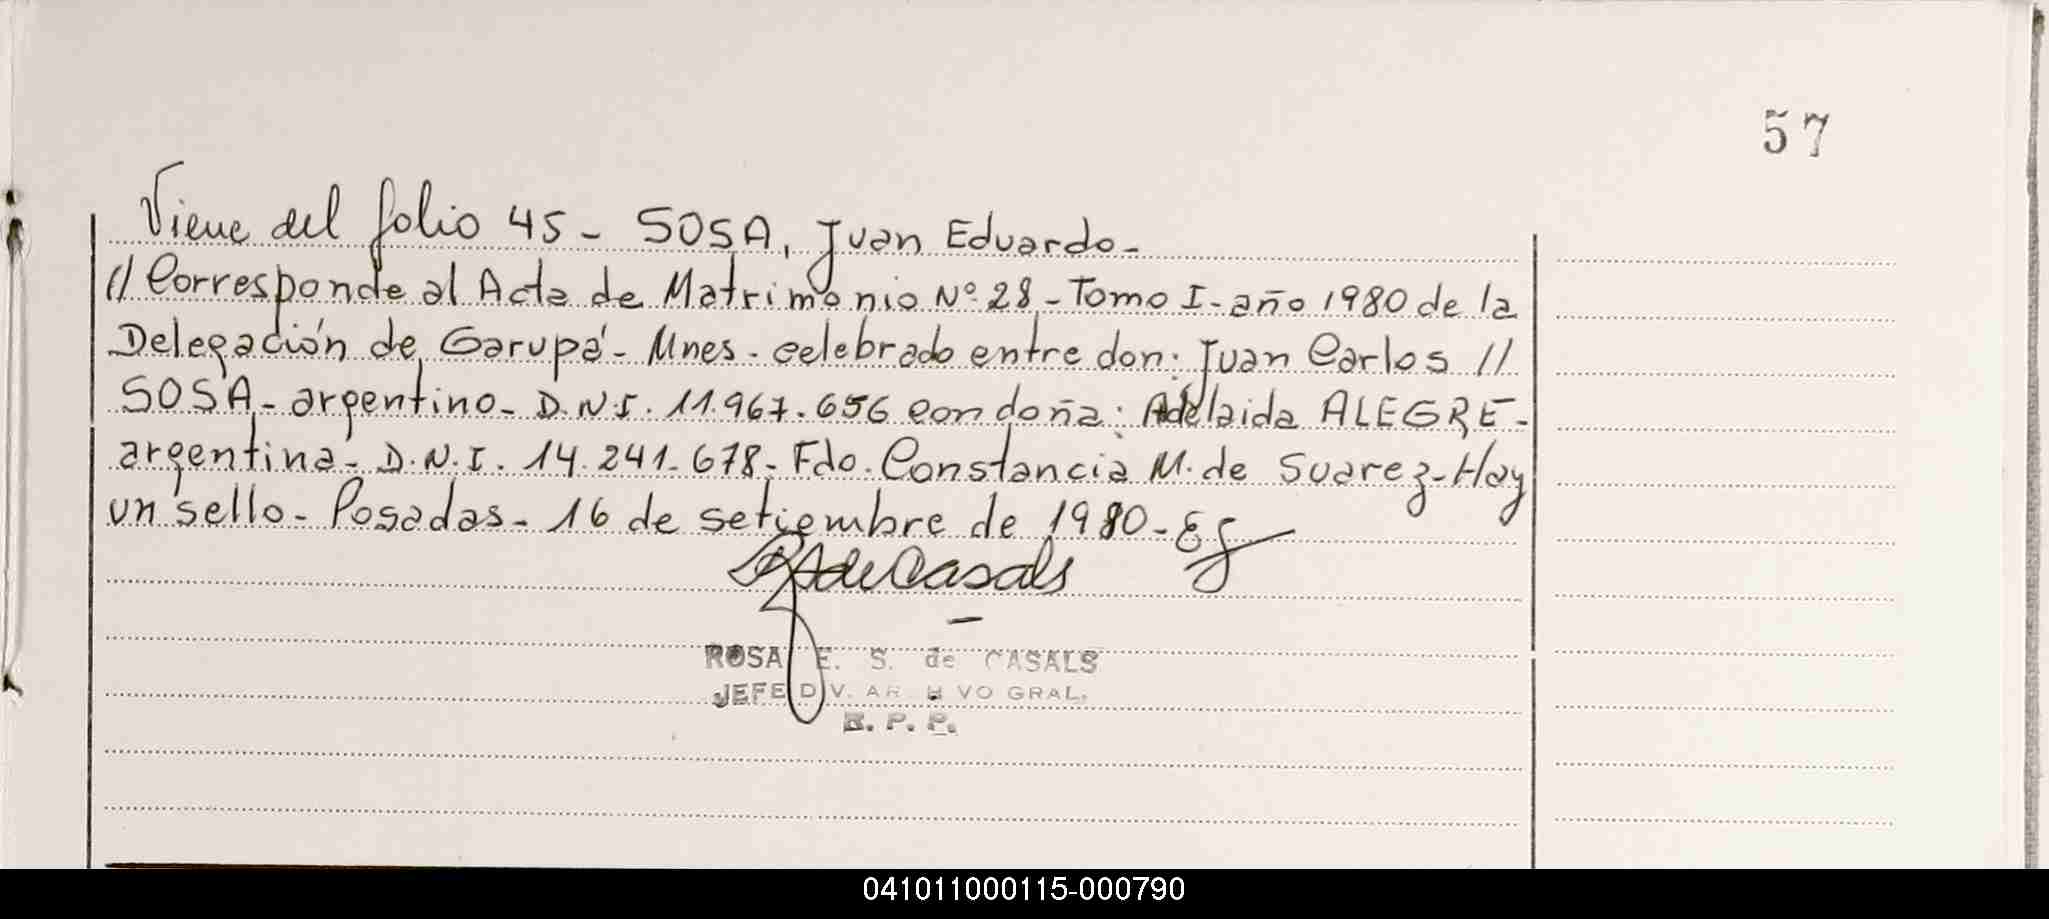 57
Viene del folio 45 - SOSA, Juan Eduardo -
// Corresponde al Acta de Matrimonio Nº 28 - Tomo I - año 1980 de la
Delegación de Garupá - Mnes - celebrado entre don: Juan Carlos //
SOSA - argentino - D.N.I. 11.967.656 con doña: Adelaida ALEGRE -
argentina - D.N.I. 14.241.678 - Fdo. Constancia M. de Suarez - Hay
un sello - Posadas - 16 de setiembre de 1980 -
de Casals
ROSA E. S. de CASALS
JEFE DIV. ARCHIVO GRAL.
R. P. P.
041011000115-000790